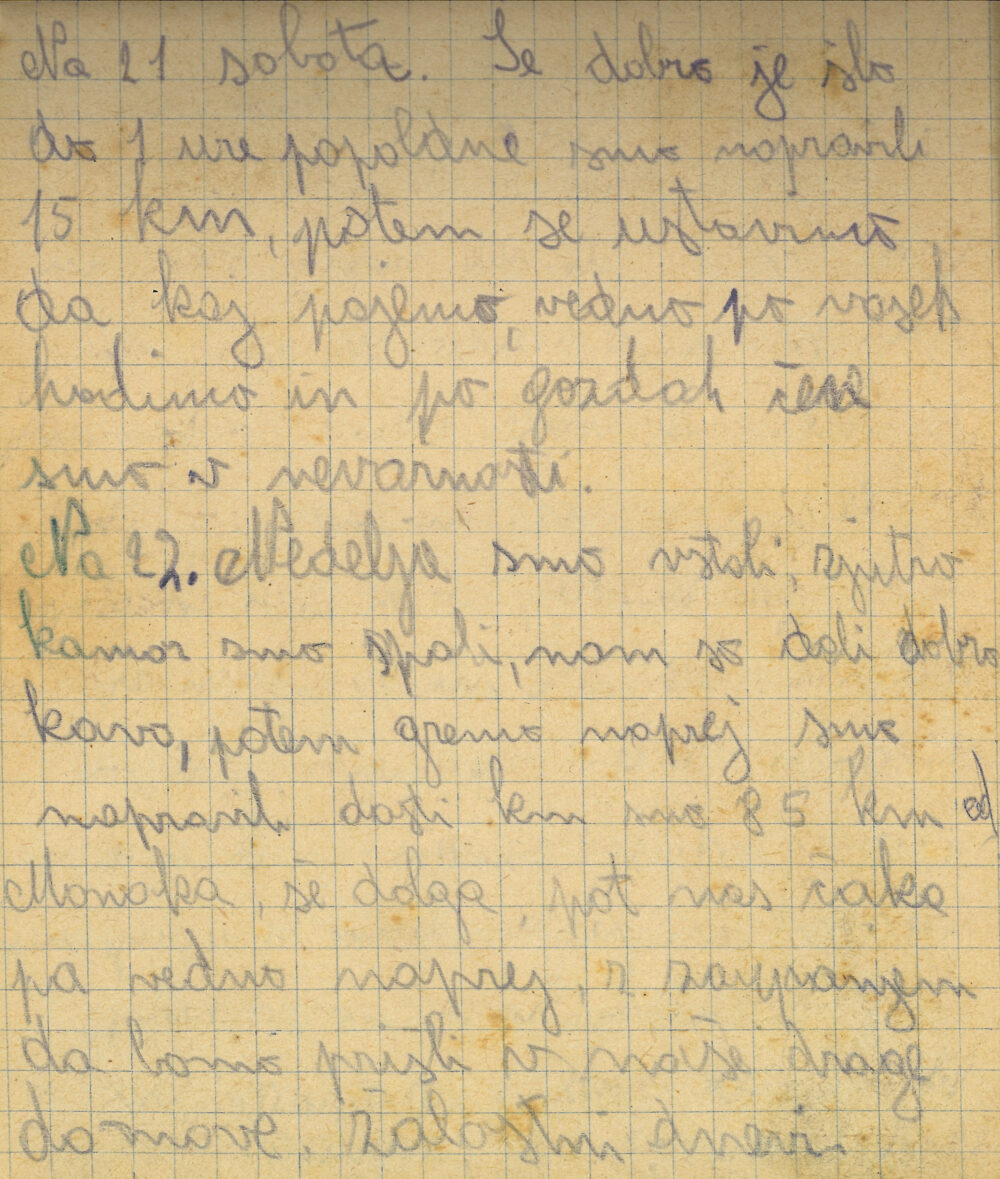 Na 21 sobota. Še dobro je šlo
do 1 ure popoldne smo napravili
15 km, potem se ustavimo
da kaj pojemo, vedno po vaseh
hodimo in po gozdah
smo v nevarnosti.
Na 22. Nedelja smo vstali, zjutro
kamor smo spali, nam so dali dobro
kavo, potem gremo naprej smo
napravili dosti km smo 85 km od
Monaka, še dolga, pot nas čaka
pa vedno naprej, z zaupanjem
da bomo prišli v naše drage
domove. Žalostni dnevi.